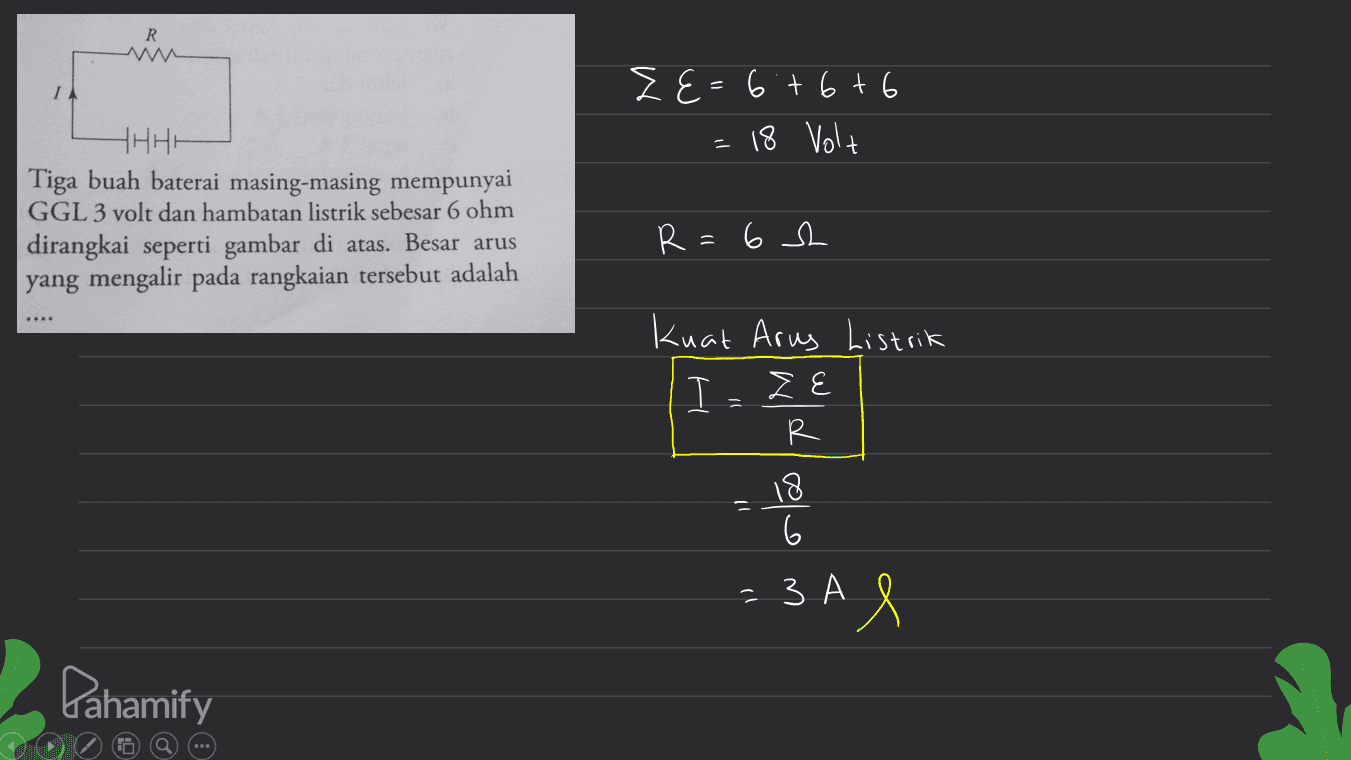 R
I
Tiga buah baterai masing-masing mempunyai
GGL 3 volt dan hambatan listrik sebesar 6 ohm
dirangkai seperti gambar di atas. Besar arus
yang mengalir pada rangkaian tersebut adalah
....
Σ Ɛ = 6 + 6 + 6
= 18 Volt
R = 6 Ω
Kuat Arus Listrik
I = Σ Ɛ / R
= 18 / 6
= 3 A
Pahamify